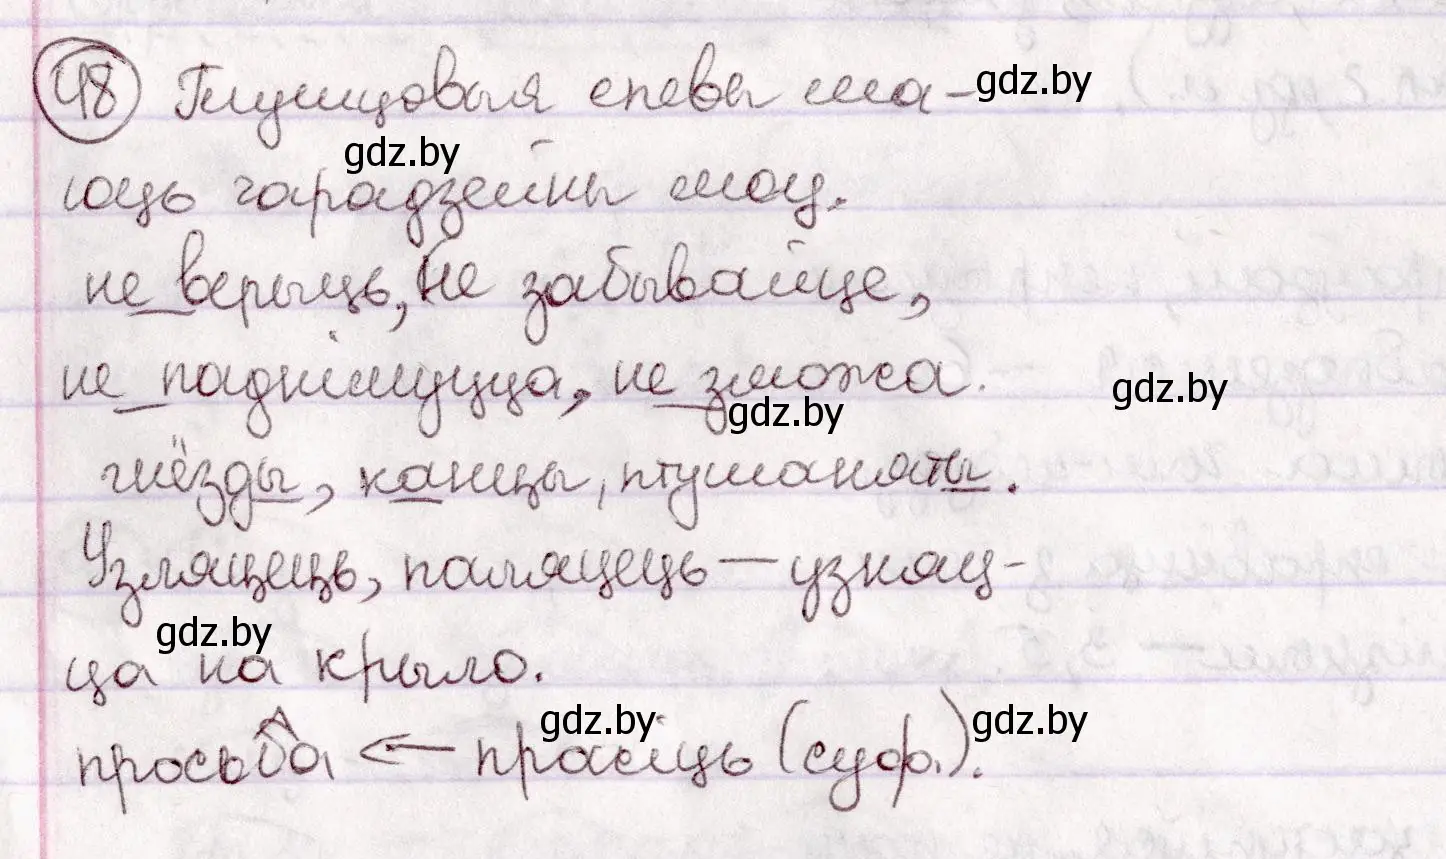 48 Глушцовыя спевы ма- gdz.by
gdz.by
юць чарадзейны моц.
не верыць, не забывайце,
не паднімуцца, не зможа. gdz.by
gdz.by
гнёзды, канцы, птушаняты.
Узляцець, паляцець — узняц-
gdz.by
ца на крыло.
gdz.by gdz.by
просьба ← прасіць (суф.).